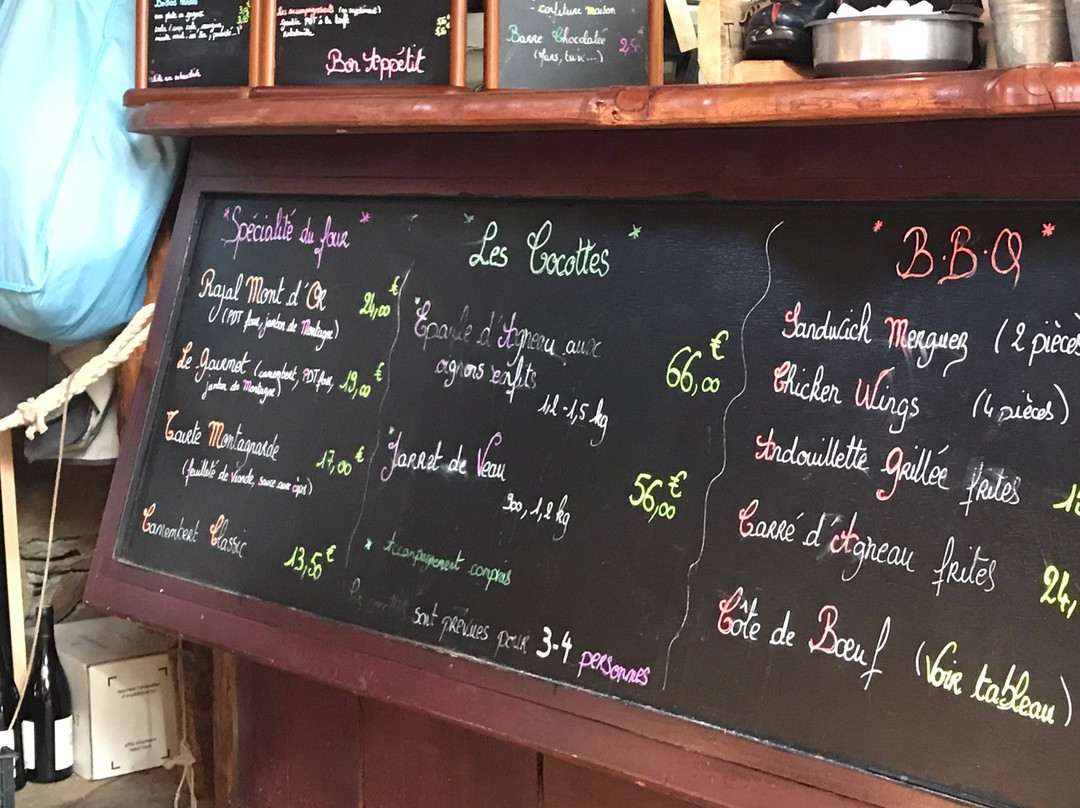 Bon Appétit
- confiture maison
Barre Chocolatée
(Mars, twix...)
*Spécialité du four*
Royal Mont d'Or 24,00€
(PDT four, jambon de Montagne)
Le Gourmet (camembert, PDT four, 19,00€
jambon de Montagne)
Tourte Montagnarde 17,00€
(feuilleté de viande, sauce aux cèpes)
Camembert Classic
13,50€
*Les Cocottes*
*Epaule d'Agneau aux
oignons confits 66,00€
1,2-1,5 kg
*Jarret de Veau
900, 1,2 kg 56,00€
* Accompagnement compris
sont prévues pour 3-4 personnes
* B.B.Q *
Sandwich Merguez (2 pièces
Chicken Wings (4 pièces)
Andouillette grillée frites
Carré d'Agneau frites 24,
Côte de Bœuf (Voir tableau)